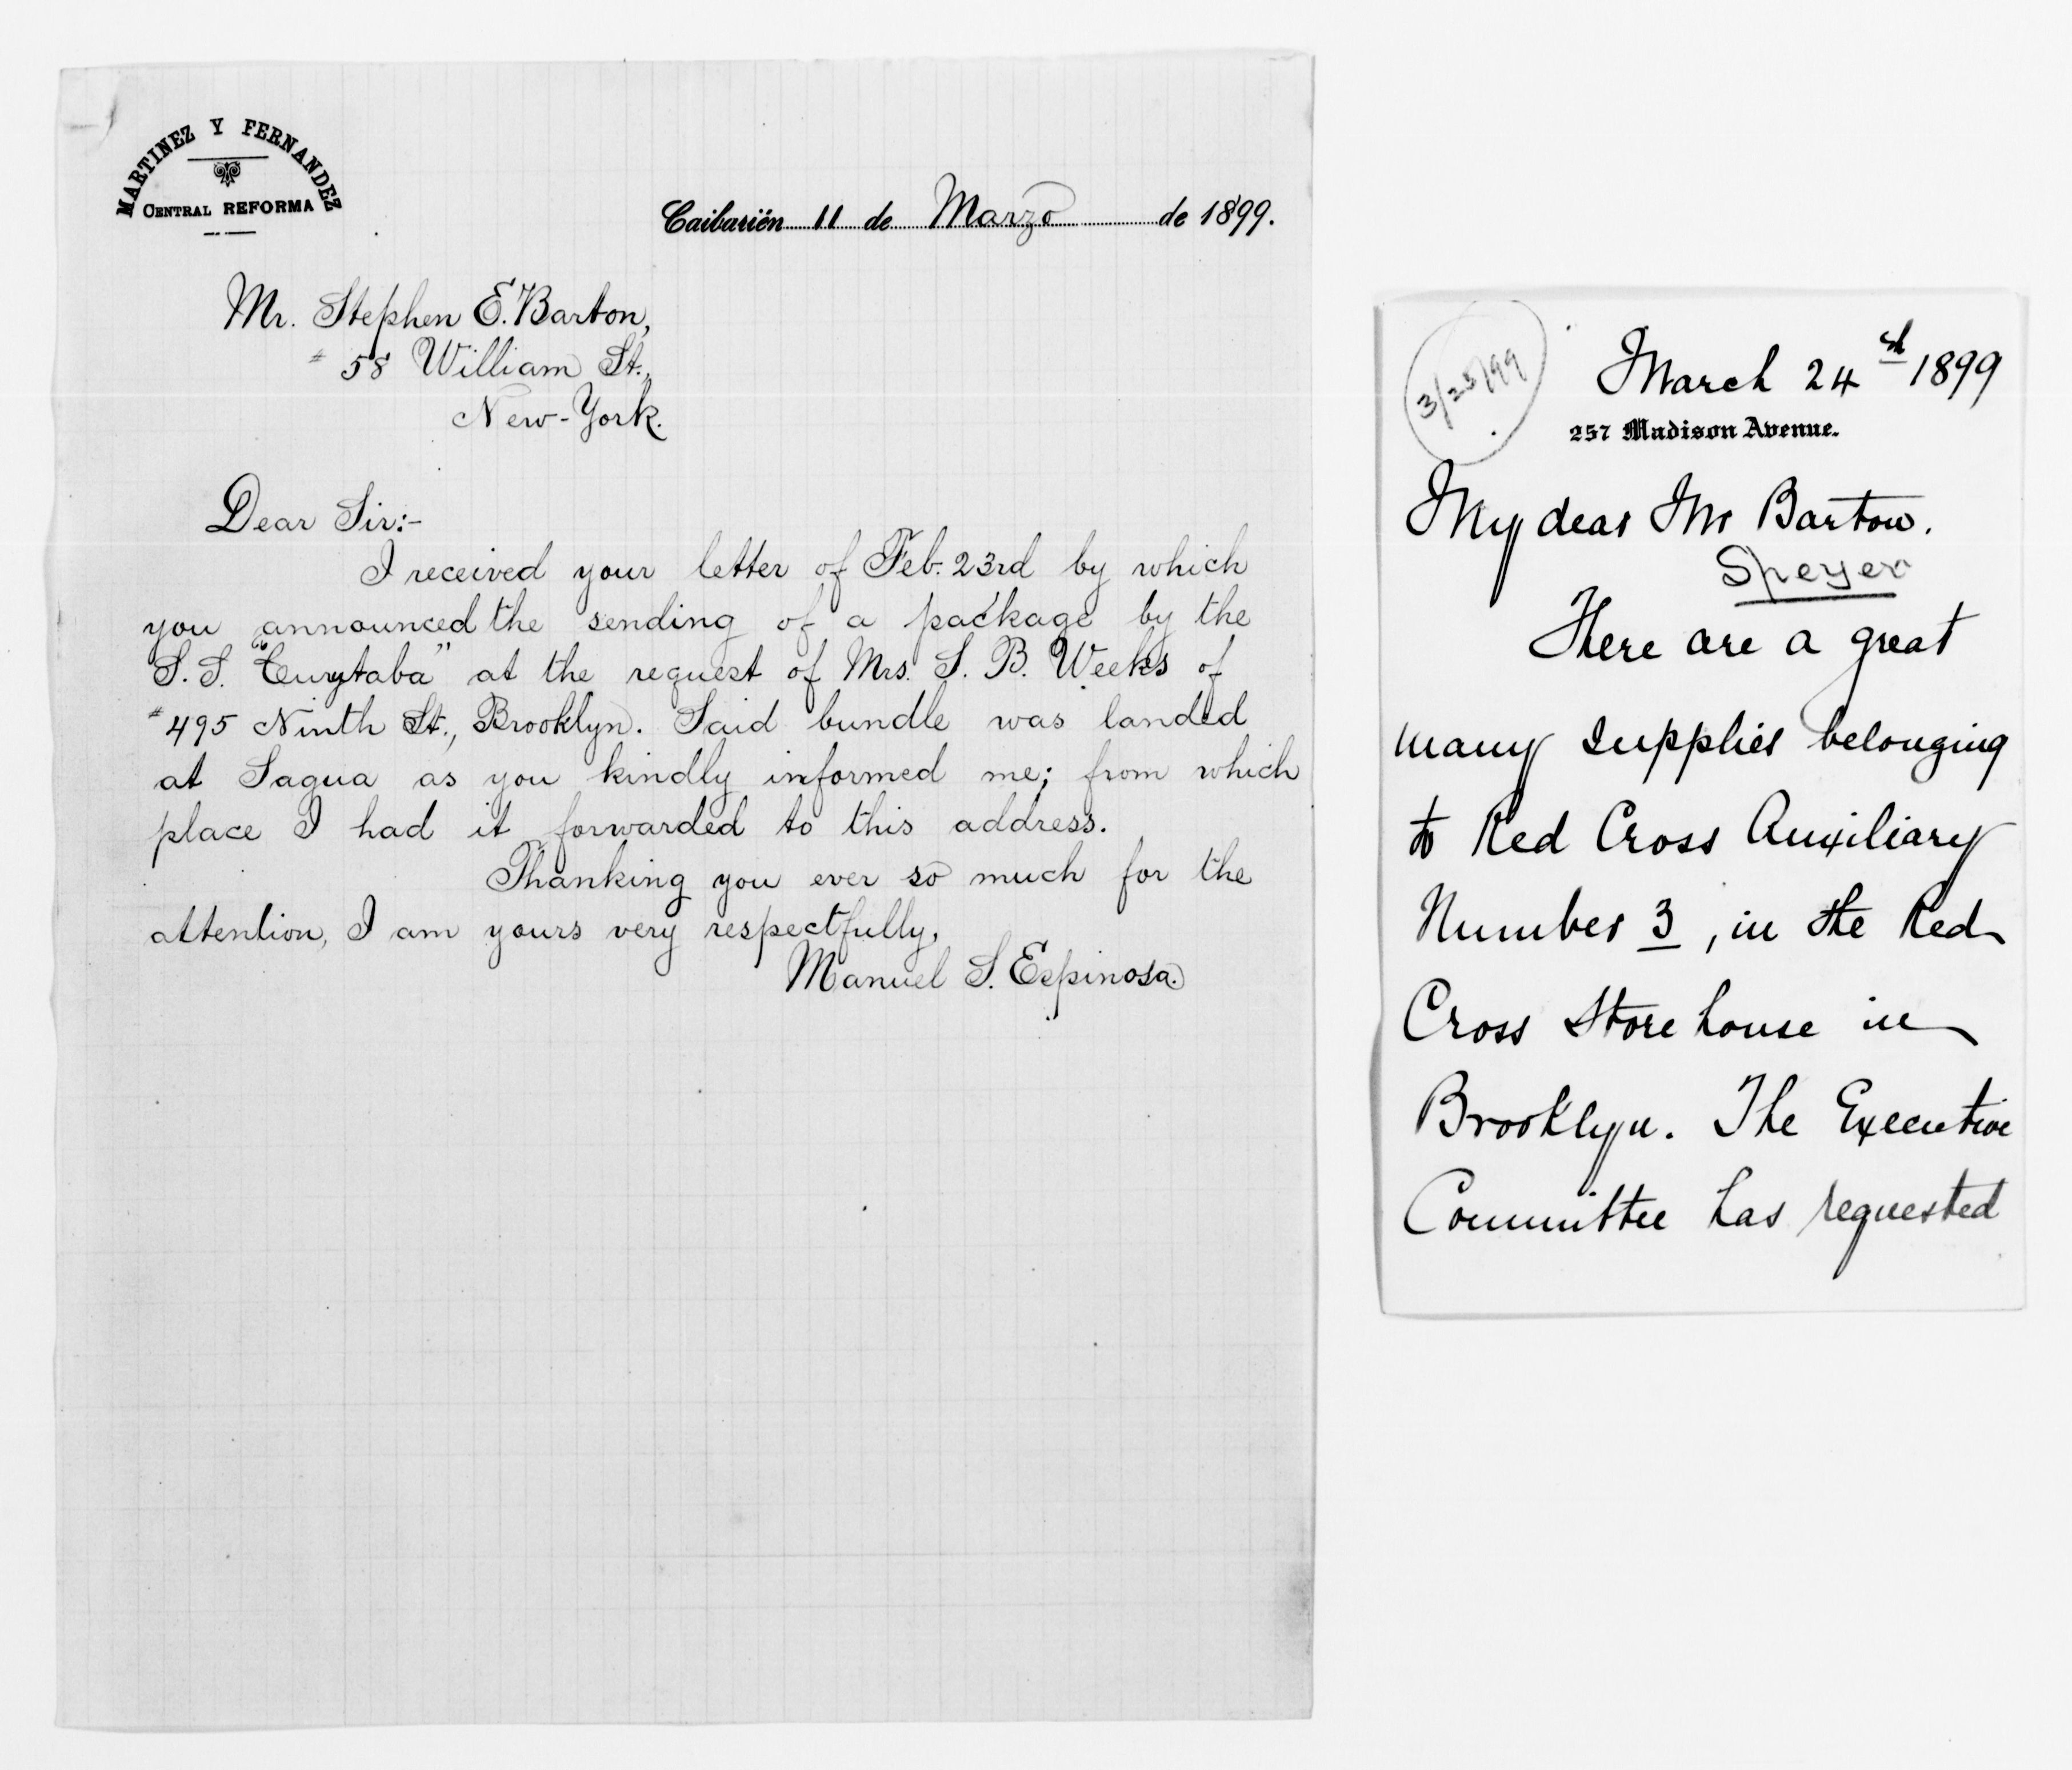 MARTINEZ Y FERNANDEZ
CENTRAL REFORMA
Caibarién 11 de Marzo de 1899.
Mr. Stephen E. Barton,
# 58 William St.,
New-York.
Dear Sir:-
I received your letter of Feb. 23rd by which
you announced the sending of a package by the
S. S. "Curytaba" at the request of Mrs. S. B. Weeks of
# 495 Ninth St., Brooklyn. Said bundle was landed
at Sagua as you kindly informed me; from which
place I had it forwarded to this address.
Thanking you ever so much for the
attention, I am yours very respectfully,
Manuel S. Espinosa.
3/25/99
March 24th 1899
257 Madison Avenue.
My dear Mr Barton.
Speyer
There are a great
many supplies belonging
to Red Cross Auxiliary
Number 3, in the Red
Cross Store house in
Brooklyn. The Executive
Committee has requested